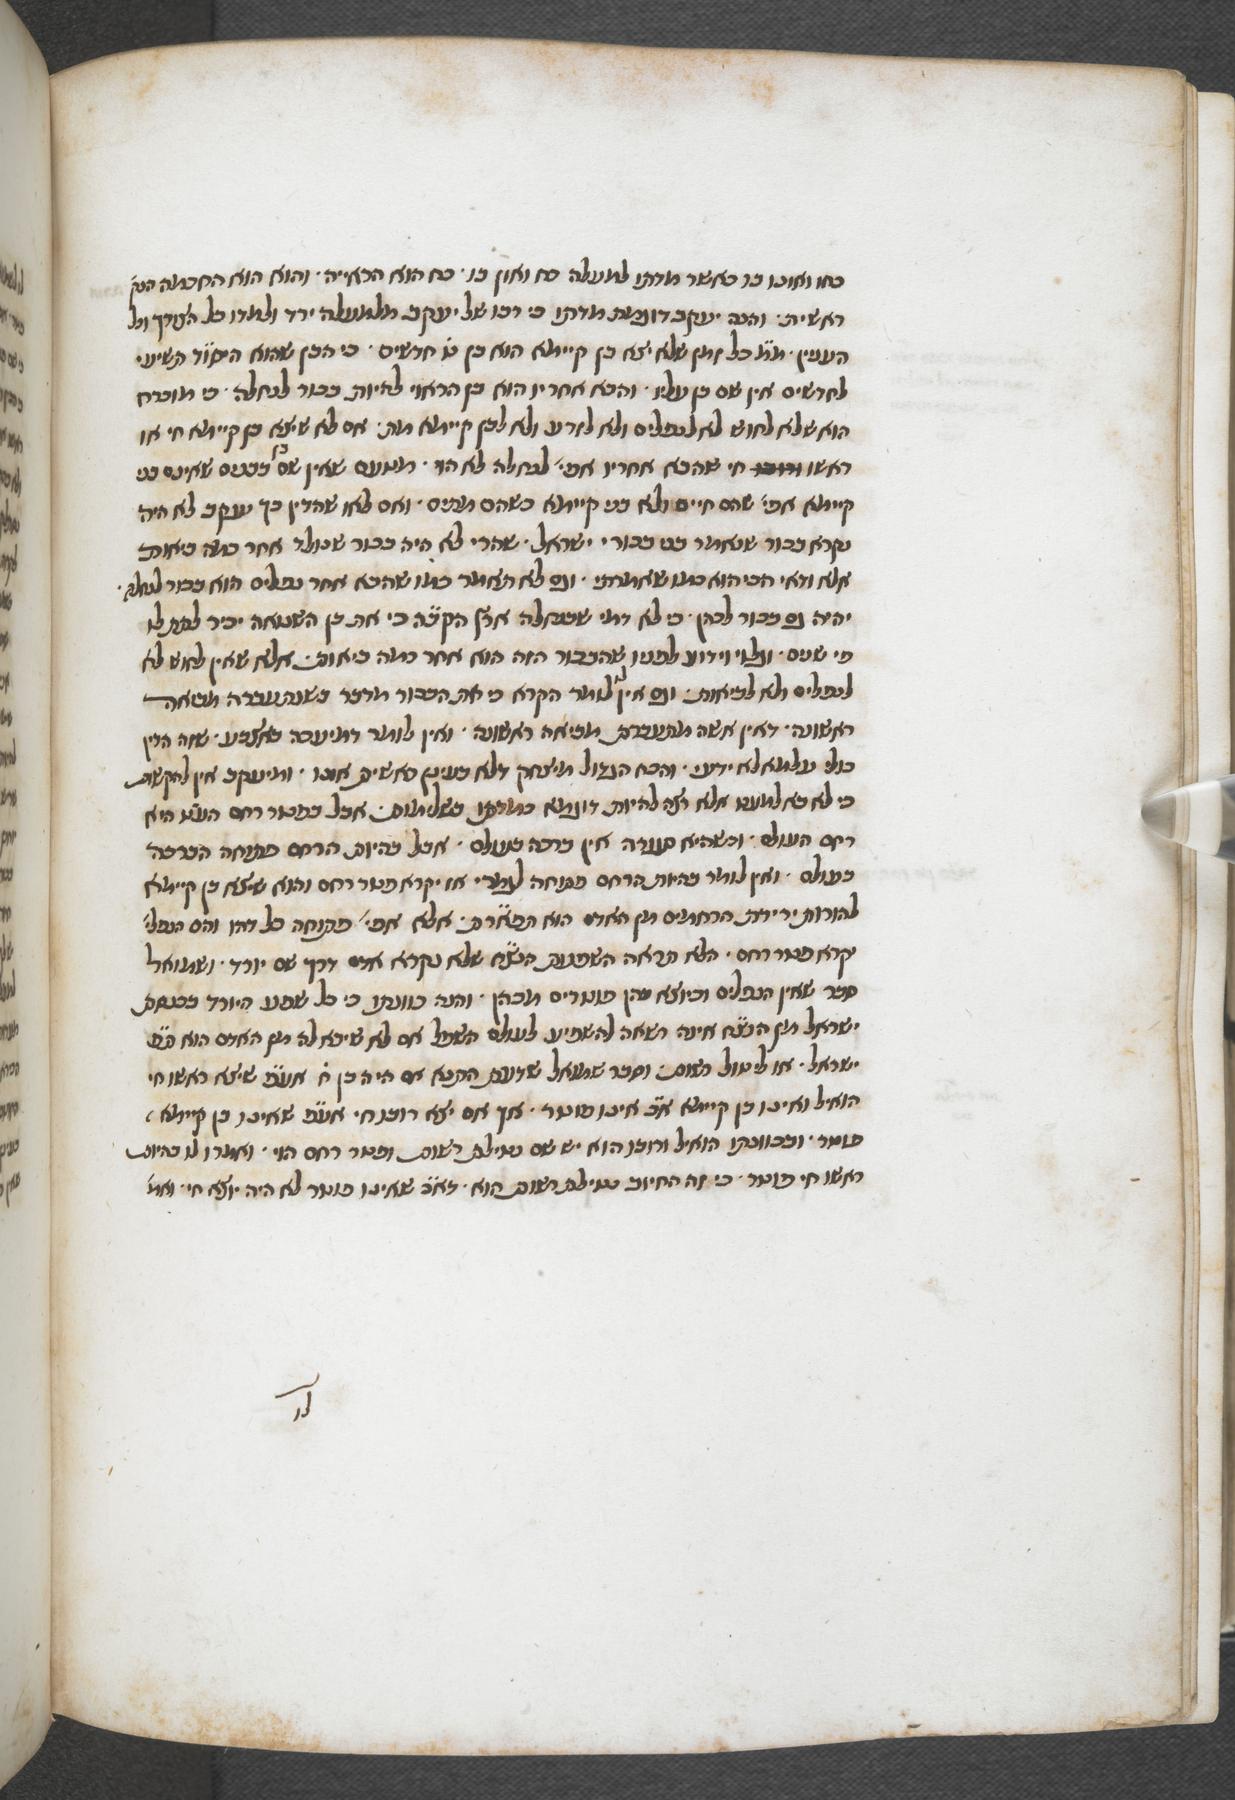 כחו ואונו בו כאשר מדתו למעלה כח ואון בו · כח הוא הראייה · והוא הוא החכמה הנק'
ראשית · והנה יעקב דוגמת מדתו כי רבו של יעקב מלמעלה ירד ולמדו כל הצורך וכל
הענין · מ"מ כל זמן שלא יצא בן קיימא הוא בן ט' חדשים · כי הבן שהוא היסוד תשיעי
לחדשים אין שם בן עליו · והבא אחריו הוא בן הראוי להיות בכור לנחלה · כי מוכרח
הוא שלא לחוש לא לנפלים ולא לזרע ולא לבן קיימא מת · אם לא שיצא בן קיימא חי או
ראשו חי שהבא אחריו אפי' לנחלה לא הד · מטעם שאין שם בן בבנים שאינם בני
קיימא אפי' שהם חיים ולא בני קיימא כשהם מתים · ואם לאו שהדין כך יעקב לא היה
נקרא בכור שנאמר בני בכורי ישראל · שהרי לא היה בכור שנולד אחר כמה ביאות
אלא ודאי הכי הוא כמו שאמרתי · וגם לא תאמר כמו שהבא אחר נפלים הוא בכור לנחלה ·
יהיה גם בכור לכהן · כי לא דמי שבנחלה אמ' הקב"ה כי את בן השנואה יכיר לתת לו
פי שנים · וגלוי וידוע לפניו שהבכור הזה הוא אחר כמה ביאות · אלא שאין לחוש לא
לנפלים ולא לביאות · וגם אין לומר הקרא כי את הבכור מדבר כשנתעברה מביאה
ראשונה · דאין אשה מתעברת מביאה ראשונה · ואין לומר דמיעכה באצבע · שזה הדין
כולי עלמא לא ידעי · והכח הגדול מיצחק דלא בעינן ראשית אונו · ומיעקב אין להקשות
כי לא בא למעט אלא רצה להיות דוגמא כמדתו בשלימות · אבל בפטר רחם העט' היא
רחם העולם · וכשהיא סגורה אין ברכה בעולם · אבל בהיות הרחם פתוחה הברכה
בעולם · ואין לומר בהיות הרחם פתוחה לגמרי אז יקרא פטר רחם והוא שיצא בן קיימא
להורות ירידת הרחמים מן האדם הוא תפארת · אלא אפי' פתוחה כל דהו והם הנפלי'
יקרא פטר רחם · הלא תראה השפעות הנצח שלא נקרא אדם דרך שם יורד · ושמואל
סבר שאין הנפלים וכיוצא מהן פוטרים מכהן · והנה כוונתו כי כל שפע היורד בכנסת
ישראל מן הנצח אינה רשאה להשפיע לעולם השפל אם לא שיבא לה מן האדם הוא ת"ת
ישראל · או ליטול רשות · וסבר שמואל שדעת התנא אם היה בן ח' אע"פ שיצא ראשו חי
הואיל ואינו בן קיימא א"כ אינו פוטר · אך אם יצא רובו חי אע"פ שאינו בן קיימא
פוטר · ובכוונתו הואיל ורובו הוא יש שם נטילת רשות ופטר רחם הוי · ואמרו לו בהיות
ראשו חי פוטר · כי זה החיוב נטילת רשות הוא · דא"כ שאינו פוטר לא היה יוצא חי · ואת
לו